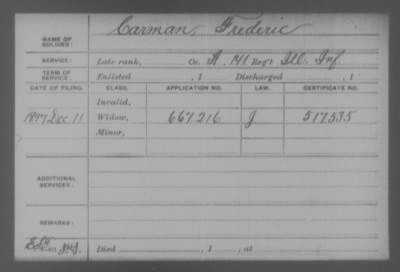 Carman, Frederic
NAME OF SOLDIER:
SERVICE: Late rank, Co. A, 141 Reg't Ill. Inf.
TERM OF SERVICE: Enlisted , 1 Discharged , 1
DATE OF FILING. CLASS. APPLICATION NO. LAW. CERTIFICATE NO.
Invalid,
1897 Dec 11 Widow, 667.216 J 517.535
Minor,
ADDITIONAL SERVICES:
REMARKS:
Died , 1 , at